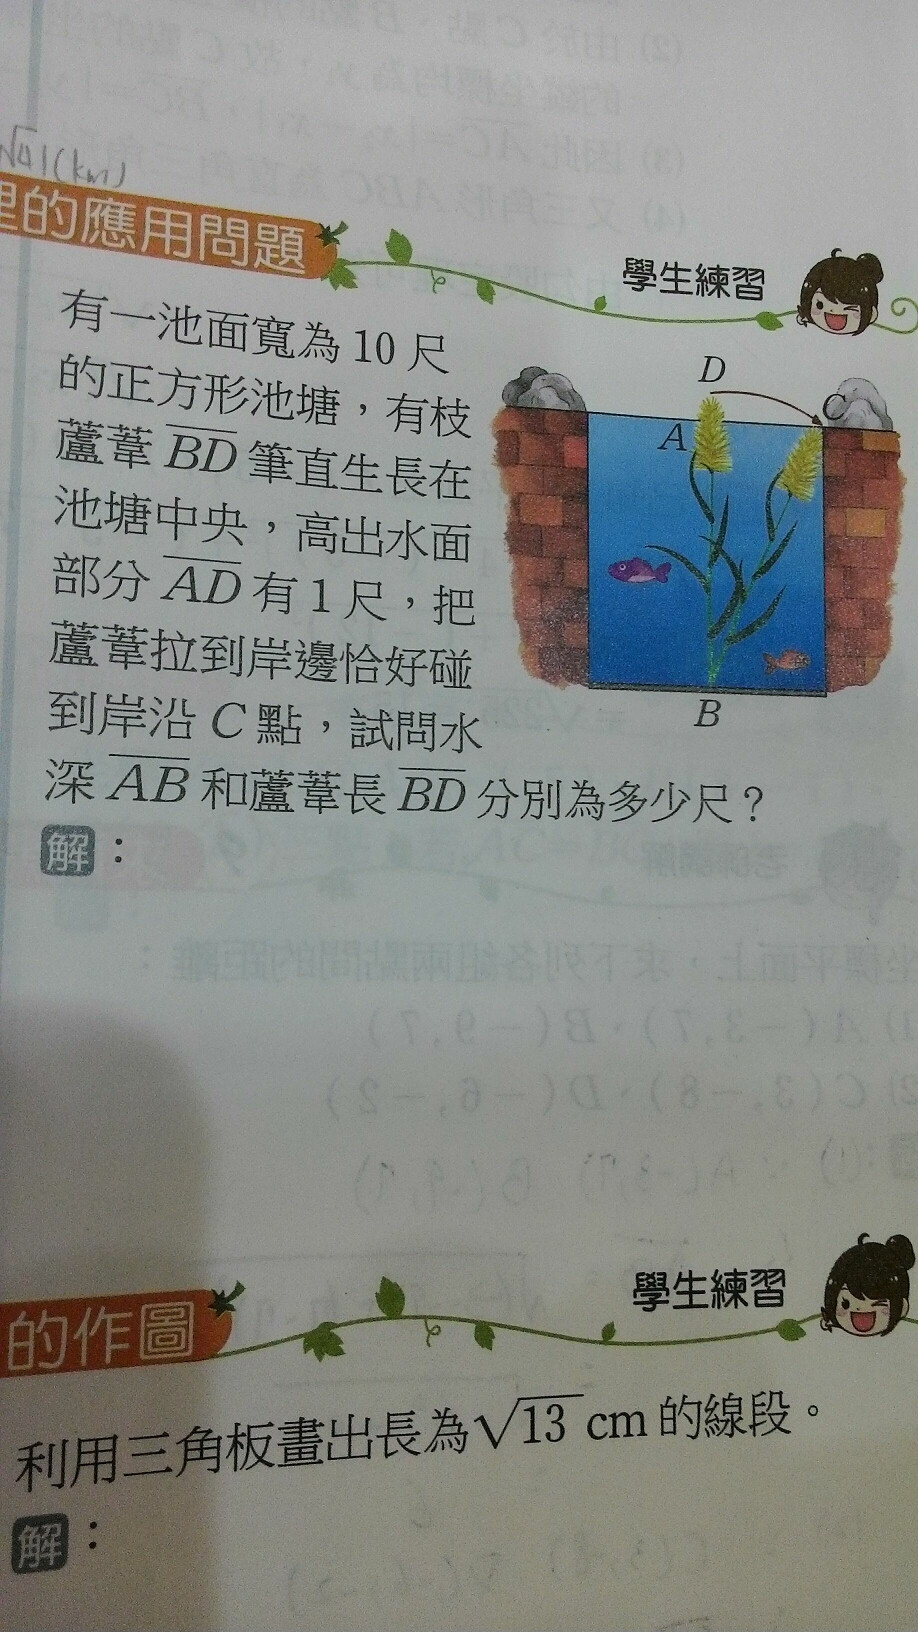 √41(km)
的應用問題
學生練習
有一池面寬為 10 尺
的正方形池塘，有枝
蘆葦 BD 筆直生長在
池塘中央，高出水面
部分 AD 有 1 尺，把
蘆葦拉到岸邊恰好碰
到岸沿 C 點，試問水
深 AB 和蘆葦長 BD 分別為多少尺？
D
C
A
B
解：
的作圖
學生練習
利用三角板畫出長為√13 cm 的線段。
解：